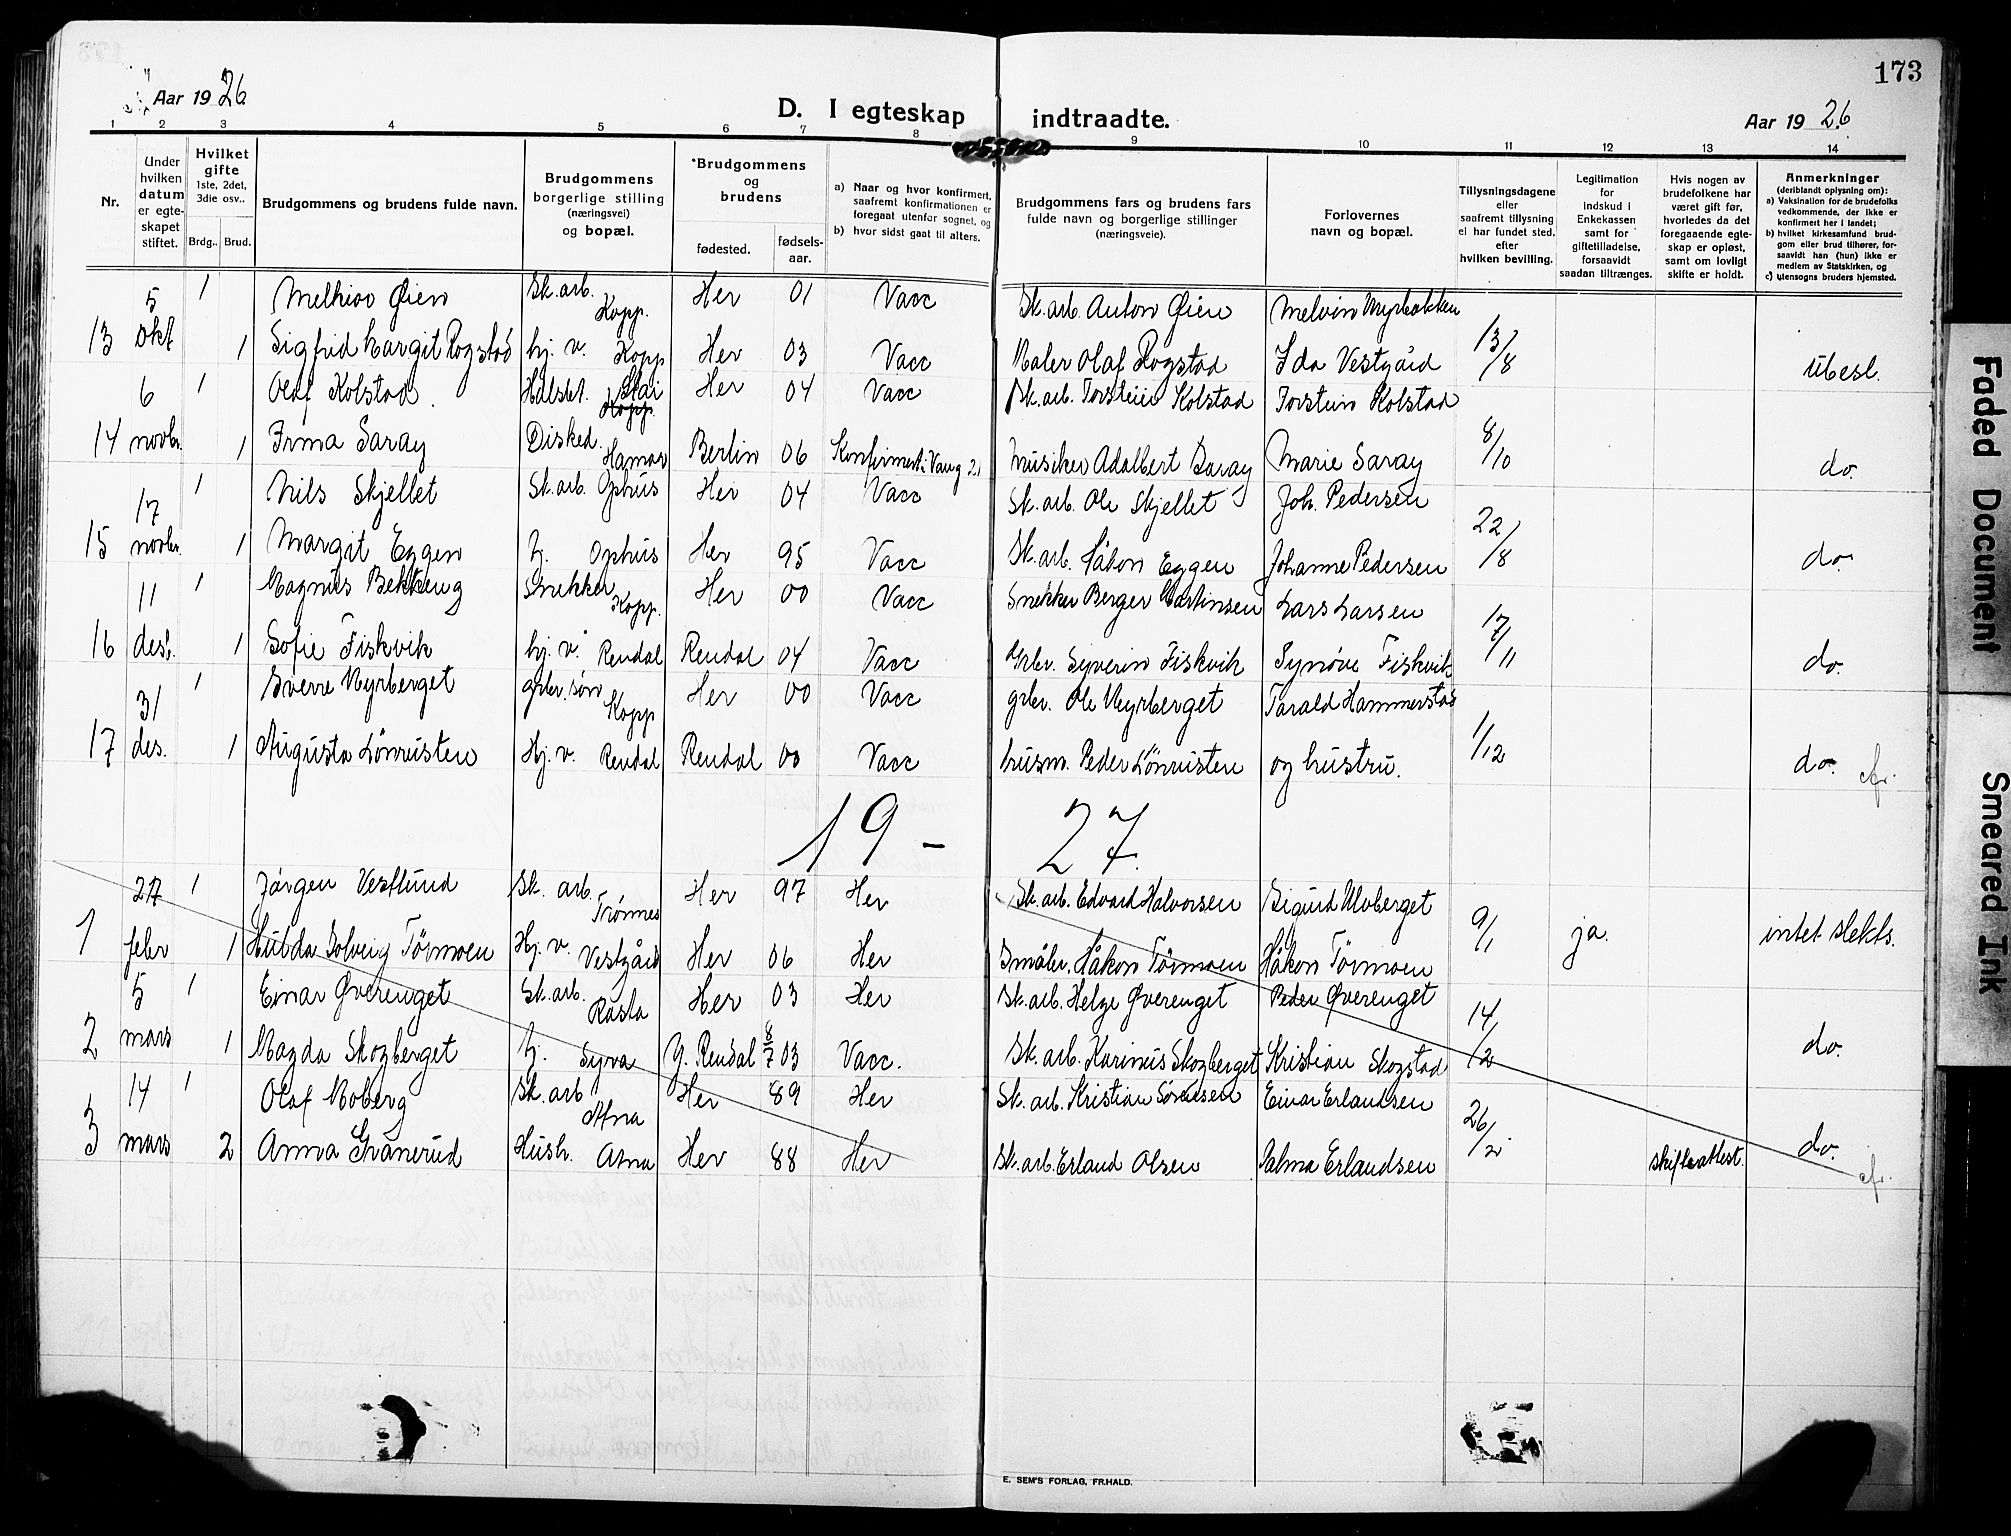 173
Aar 1926
D. I egteskap indtraadte.
Aar 1926
1 2 3 4 5 6 7 8 9 10 11 12 13 14
Nr.
Under hvilken datum er egteskapet stiftet.
Hvilket gifte 1ste, 2det, 3die osv..
Brdg.. Brud.
Brudgommens og brudens fulde navn.
Brudgommens borgerlige stilling (næringsvei) og bopæl.
*Brudgommens og brudens
fødested. fødselsaar.
a) Naar og hvor konfirmert, saafremt konfirmationen er foregaat utenfor sognet, og
b) hvor sidst gaat til alters.
Brudgommens fars og brudens fars fulde navn og borgerlige stillinger (næringsveie).
Forlovernes navn og bopæl.
Tillysningsdagene eller saafremt tillysning ei har fundet sted, efter hvilken bevilling.
Legitimation for indskud i Enkekassen samt for giftetilladelse, forsaavidt saadan tiltrænges.
Hvis nogen av brudefolkene har været gift før, hvorledes da det foregaaende egteskap er opløst, samt om lovligt skifte er holdt.
Anmerkninger (deriblandt oplysning om):
a) Vaksination for de brudefolks vedkommende, der ikke er konfirmert her i landet;
b) hvilket kirkesamfund brudgom eller brud tilhører, forsaavidt han (hun) ikke er medlem av Statskirken, og
c) utensogns bruders hjemsted.
5 1 Melkior Øien Sk. arb. Kopp. Her 01 Vacc Sk. arb. Anton Øien Melvin Myrbakken
13 okt 1 Sigfrid Margit Rogstad hj. v. Kopp Her 03 Vacc Maler Olaf Rogstad Ida Vestgård 13/8 ubesl.
6 1 Olaf Kolstad Halslet. Stai Kopp. Her 04 Vacc Sk. arb. Torstein Kolstad Torstein Kolstad
14 novbr. 1 Irma Saray Disked. Hamar Berlin 06 Konfirmert i Vang 21 Musiker Adalbert Saray Marie Saray 8/10 do.
17 1 Nils Skjellet Sk. arb. Ophus Her 04 Vacc Sk. arb. Ole Skjellet Joh. Pedersen
15 novbr. 1 Margit Eggen hj. Ophus Her 95 Vacc Sk. arb. Håkon Eggen Johanne Pedersen 22/8 do.
11 1 Magnus Bekkeng Snekker Kopp. Her 00 Vacc Snekker Berger Martinsen Lars Larsen
16 desb. 1 Sofie Fiskvik hj. v. Rendal Rendal 04 Vacc Grbr. Syverin Fiskvik Synøve Fiskvik 17/11 do.
31 1 Sverre Myrberget grbr. søn Kopp Her 00 Vacc grbr. Ole Myrberget Tarald Hammerstad
17 des. 1 Augusta Lønruisten Hj. v. Rendal Rendal 00 Vacc husm. Peder Lønruisten og hustru. 1/12 do. cfr.
19 - 27.
27 1 Jørgen Vestlund Sk. arb. Trønnes Her 97 Her Sk. arb. Edvard Halvorsen Sigurd Ulvberget
1 febr 1 Hulda Solveig Tørmoen Hj. v. Vestgård Her 06 Her Småbr. Håkon Tørmoen Håkon Tørmoen 9/1 ja. intet slekts.
5 1 Einar Øverenget Sk. arb. Rasta Her 03 Her Sk. arb. Helge Øverenget Peder Øverenget
2 mars 1 Magda Skogberget hj. Syva Y. Rendal 8/7 03 Vacc. Sk. arb. Karinus Skogberget Kristian Skogstad 14/2 do.
14 1 Olaf Moberg Sk. arb Atna Her 89 Her Sk. arb. Kristian Sørensen Einar Erlandsen
3 mars 2 Anna Granerud Hush. Atna Her 88 Her Sk. arb. Erland Olsen Palma Erlandsen 26/2 skifteattest. do. cfr.
E. SEM'S FORLAG, FR.HALD.
Faded Document
Smeared Ink